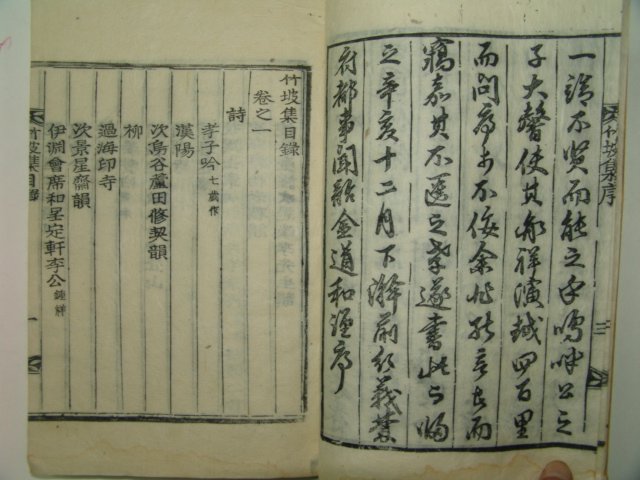 一請不贤而能之乎嗚呼公之
子大馨使其孫祥演越四百里
而問序於不佞余非能言者而
竊嘉其不遠之孝遂書此以歸
之辛亥十二月下澣前行義禁
府都事聞韶金道和謹序
竹坡集序
竹坡集目錄
卷之一
詩
孝子吟七歲作
漢陽
次鳥谷蘆田修契韻
柳
過海印寺
次景星齋韻
伊淵會席和星定軒李公鍾祥
竹坡集目錄
一